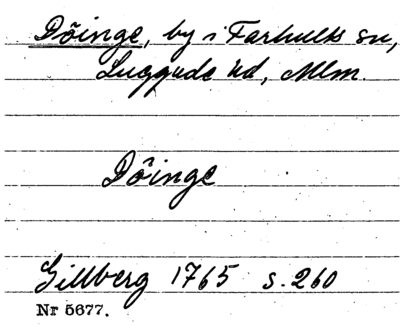 Döinge, by i Farhults sn,
Luggude hd, Mlm.
Döinge
Gillberg 1765 s. 260
Nr 5677.